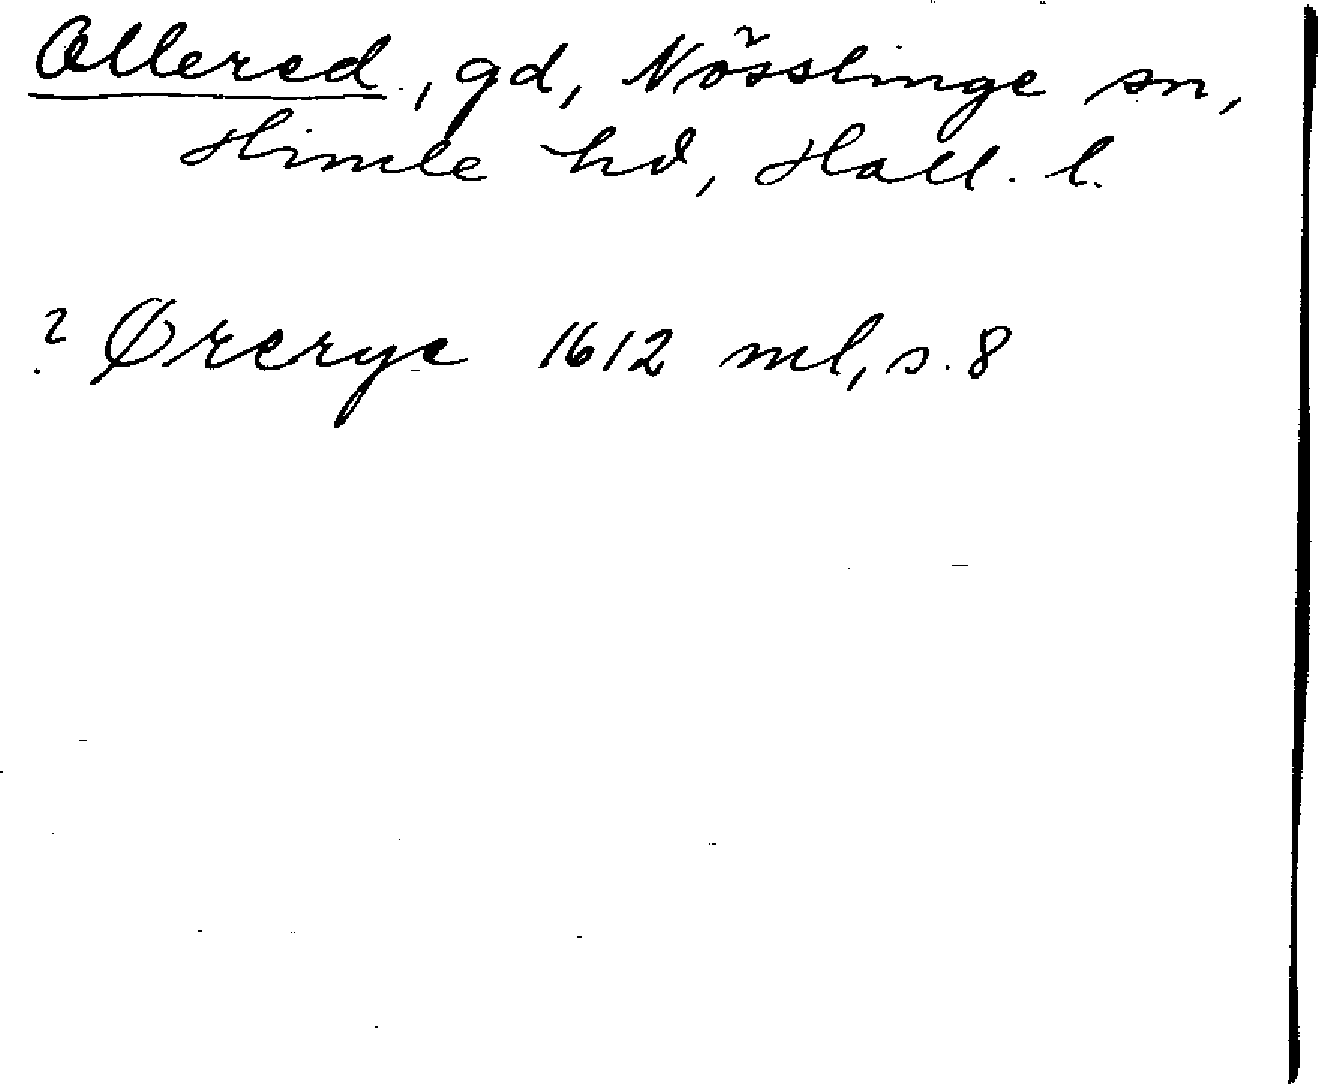 Ollered, gd, Nösslinge sn,
Himle hd, Hall. l.
? Ørerye 1612 ml, s. 8